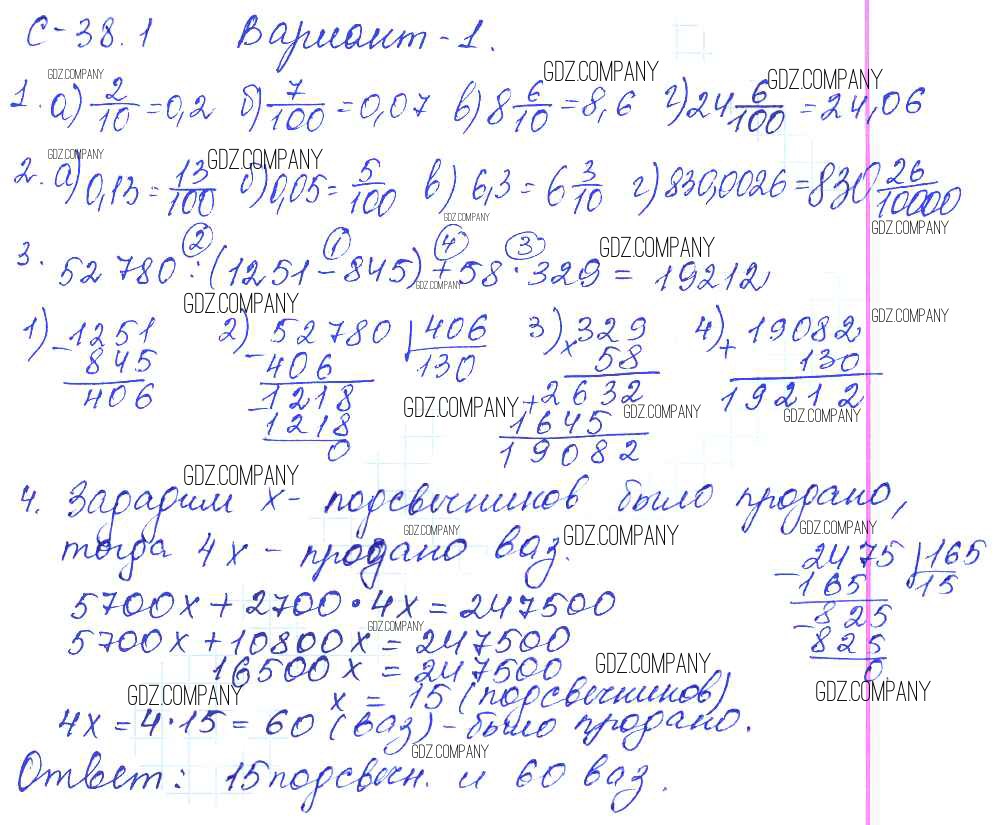 С-38.1 Вариант-1.
GDZ.COMPANY GDZ.COMPANY GDZ.COMPANY
1. а) 2/10 = 0,2 б) 7/100 = 0,07 в) 8 6/10 = 8,6 г) 24 6/100 = 24,06
GDZ.COMPANY GDZ.COMPANY
2. а) 0,13 = 13/100 б) 0,05 = 5/100 в) 6,3 = 6 3/10 г) 830,0026 = 830 26/10000
GDZ.COMPANY GDZ.COMPANY
2 1 4 3
GDZ.COMPANY
3. 52780 : (1251 - 845) + 58 · 329 = 19212
GDZ.COMPANY
GDZ.COMPANY GDZ.COMPANY
1) - 1251 2) - 52780 | 406 3) × 329 4) + 19082
845 406 130 58 130
406 - 1218 + 2632 19212
GDZ.COMPANY GDZ.COMPANY GDZ.COMPANY
1218 1645
0 19082
GDZ.COMPANY
4. Зададим х - подсвечников было продано,
GDZ.COMPANY GDZ.COMPANY GDZ.COMPANY
тогда 4х - продано ваз.
- 2475 | 165
165 15
- 825
825
0
5700х + 2700 · 4х = 247500
GDZ.COMPANY
5700х + 10800х = 247500
16500х = 247500
GDZ.COMPANY
GDZ.COMPANY GDZ.COMPANY
х = 15 (подсвечников)
4х = 4 · 15 = 60 (ваз) - было продано.
GDZ.COMPANY
Ответ: 15 подсвечн. и 60 ваз.